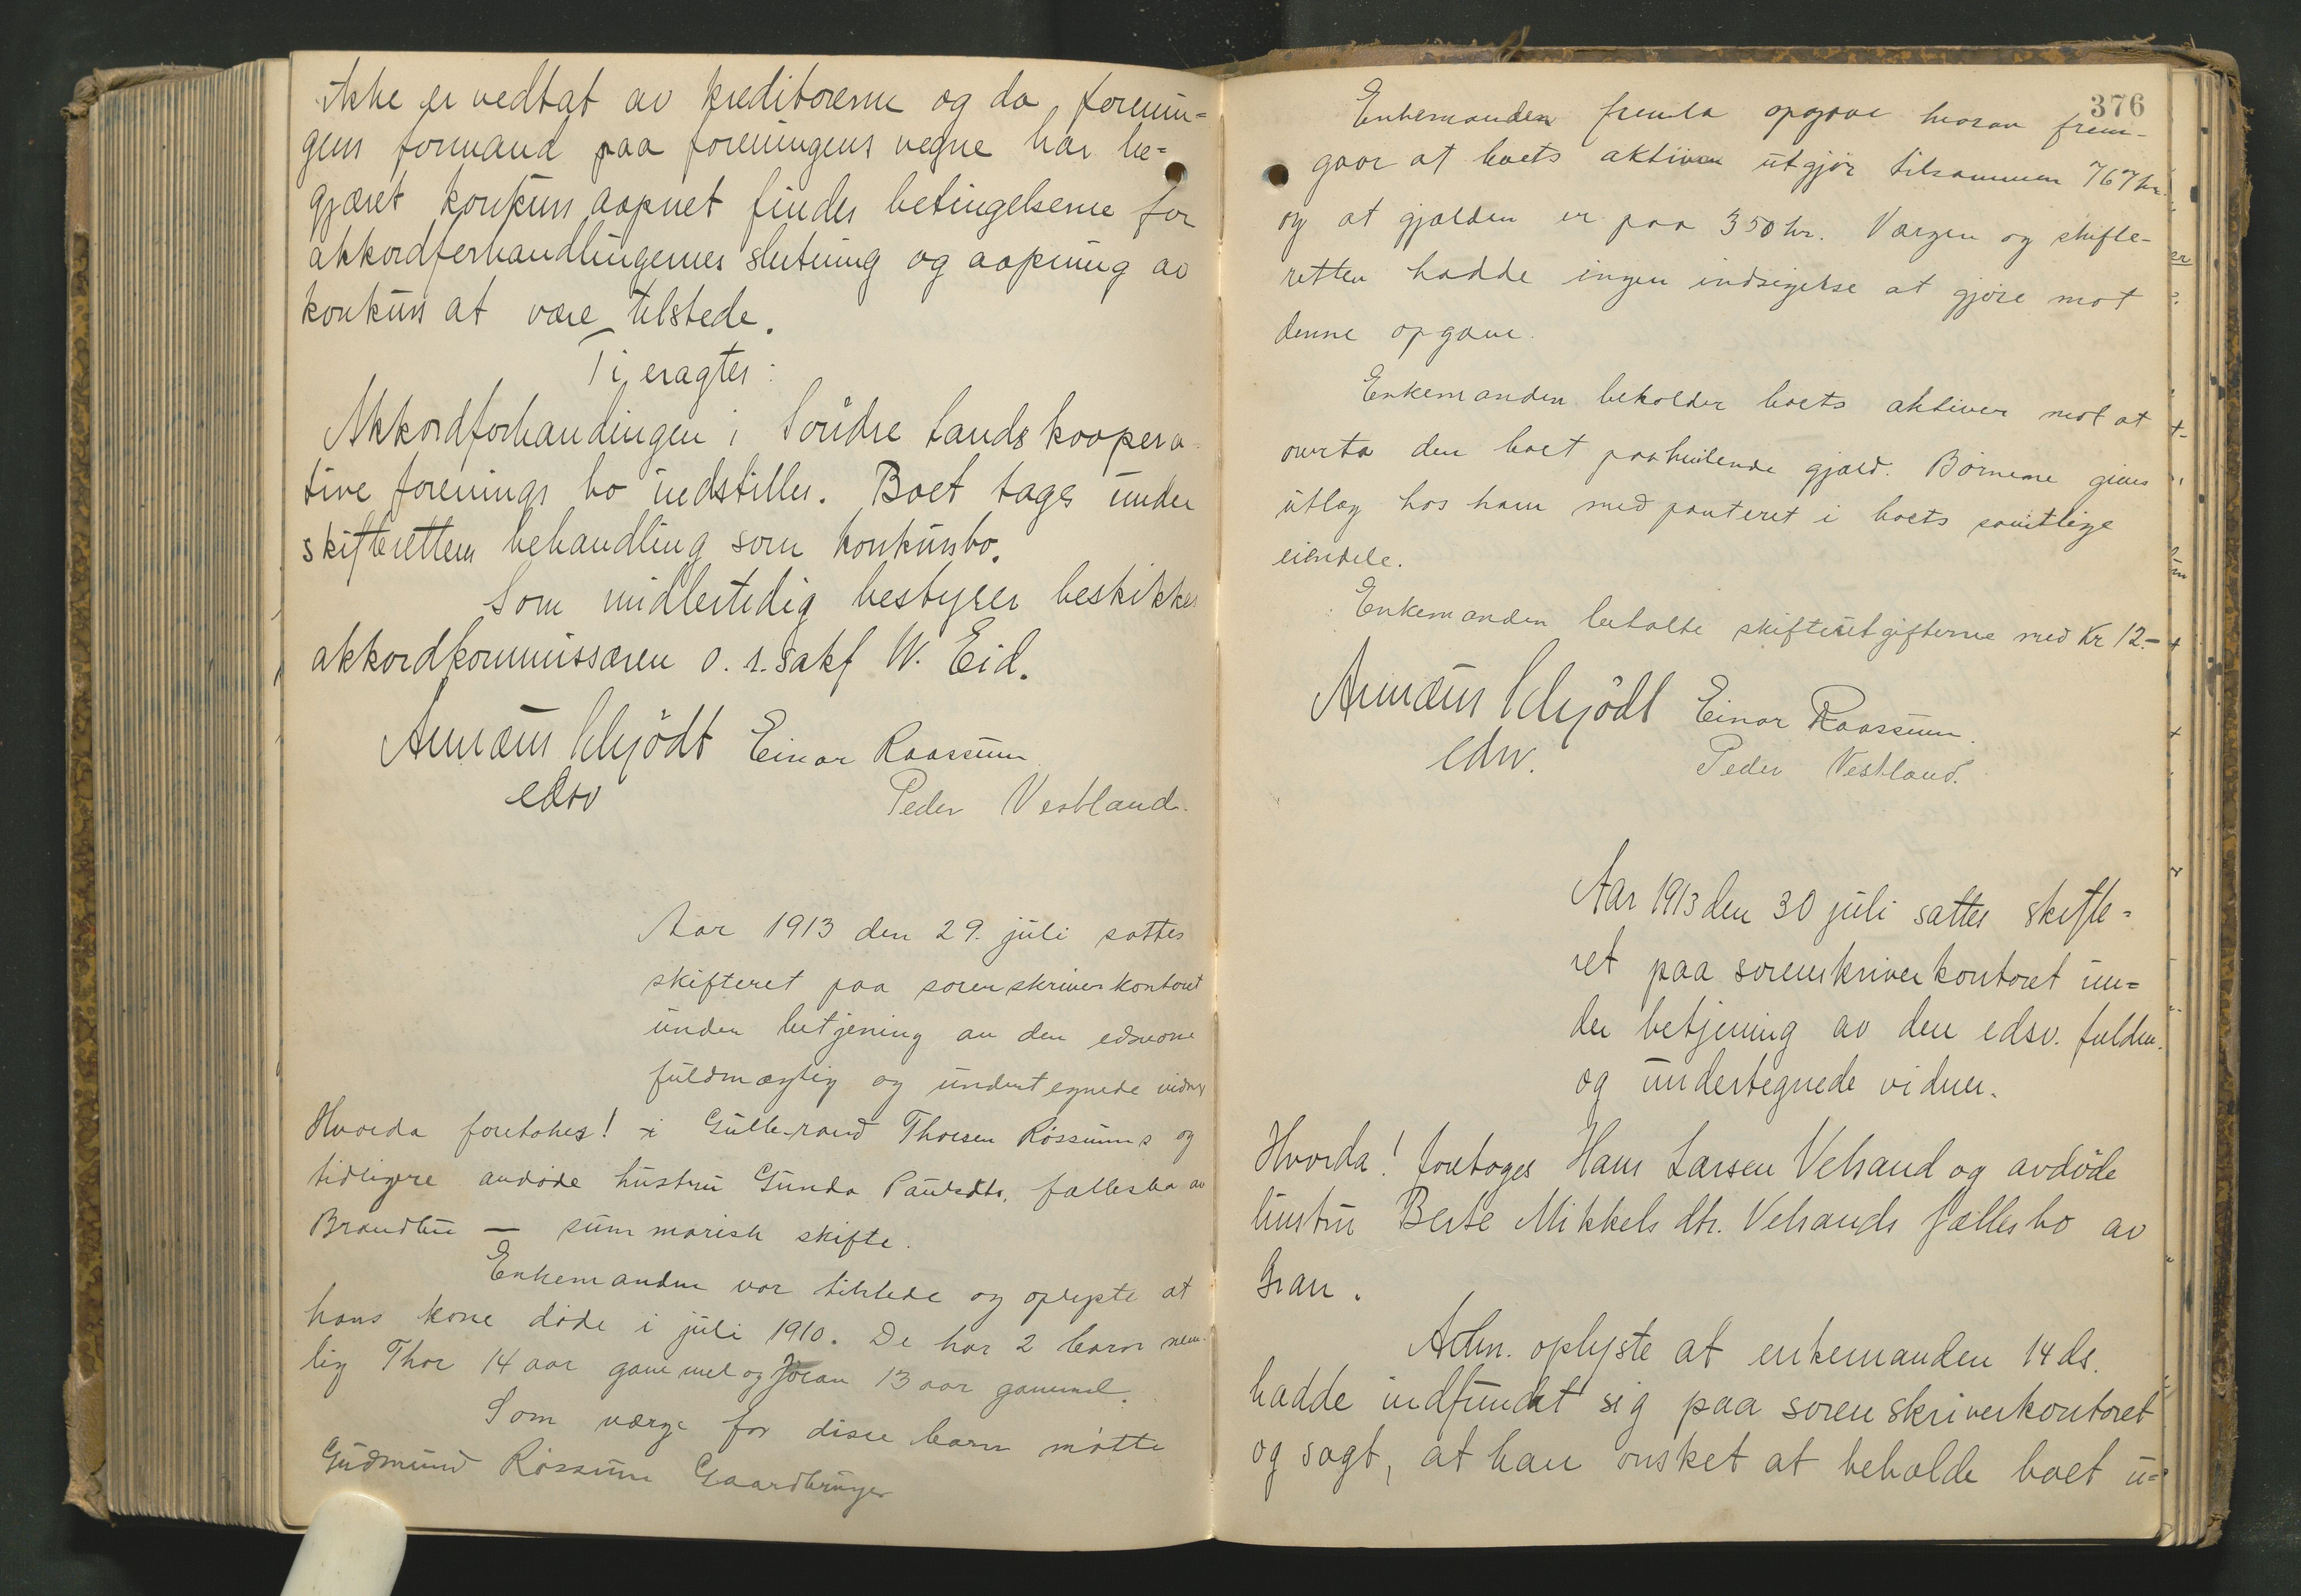 ikke er vedtat av kreditorerne og da forenin=
gens formand paa foreningens vegne har be=
gjæret konkurs aapnet findes betingelserne for
akkordforhandlingernes slutning og aapning av
konkurs at være tilstede.
Ti eragtes:
Akkordforhandlingen i Søndre Lands koopera-
tive forenings bo indstilles. Boet tages under
skifterettens behandling som konkursbo.
Som midlertidig bestyrer beskikkes
akkordkommissæren o.r.sakf W. Eid.
Schjödt Einar Raassum
edsv Peder Vestland.
Aar 1913 den 29. juli sattes
skifteret paa sorenskriverkontoret
under betjening av den edsvorne
fuldmægtig og undertegnede vidner
Hvorda foretokes! i Gulbrand Thorsen Røssums og
tidligere avdøde hustru Gunda Paulsdtr. fællesbo av
Brandbu — summarisk skifte.
Enkemanden var tilstede og oplyste at
hans kone døde i juli 1910. De har 2 barn nem-
lig Thor 14 aar gammel og Jöran 13 aar gammel.
Som værge for disse barn møtte
Gudmund Røssum Gaardbruger
376
Enkemanden fremla opgave hvorav frem-
gaar at boets aktiver utgjør tilsammen 767 kr.
og at gjælden er paa 350 kr. Værgen og skifte-
retten hadde ingen indsigelse at gjøre mot
denne opgave.
Enkemanden beholder boets aktiver mot at
overta den boet paahvilende gjæld. Børnene gives
utlæg hos ham med panteret i boets samtlige
eiendele.
Enkemanden betalte skifteutgifterne med Kr 12.-
Schjödt Einar Raassum.
edsv. Peder Vestland.
Aar 1913 den 30 juli sattes skifte=
ret paa sorenskriverkontoret un=
der betjening av den edsv. fuldm.
og undertegnede vidner.
Hvorda! foretoges Hans Larsen Velsand og avdöde
hustru Berte Mikkels dtr. Velsands fællesbo av
Gran.
Adm. oplyste at enkemanden 14 ds.
hadde indfundet sig paa sorenskriverkontoret
og sagt, at han ønsket at beholde boet u=